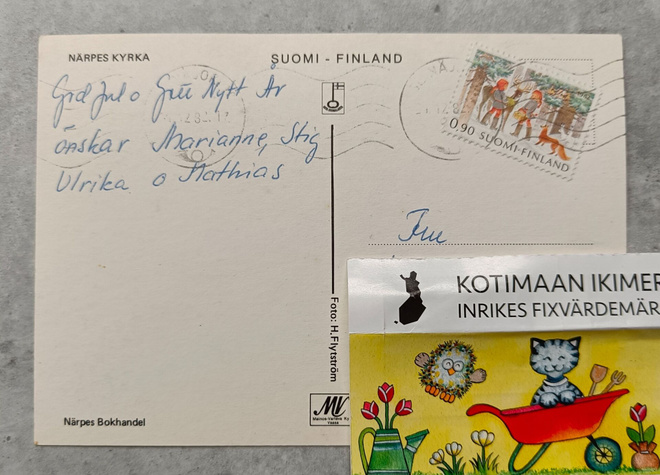 NÄRPES KYRKA
SUOMI - FINLAND
God Jul o Gott Nytt År
önskar Marianne, Stig
Ulrika o Mathias
0.90 SUOMI-FINLAND
Fru
Foto: H.Flytström
Närpes Bokhandel
MV
KOTIMAAN IKIMER
INRIKES FIXVÄRDEMÄR